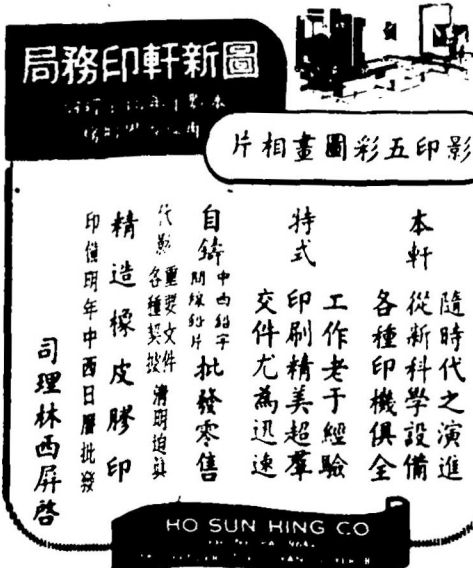 圖新軒印務局
影印五彩圖畫相片
本軒
隨時代之演進
從新科學設備
各種印機俱全
特式
工作老于經驗
印刷精美超羣
交件尤為迅速
自鑄中西鉛字
間線鉛片
批發零售
代影重要文件
各種契據
清明迫真
精造橡皮膠印
印備明年中西日曆批發
司理林西屏啓
HO SUN HING CO